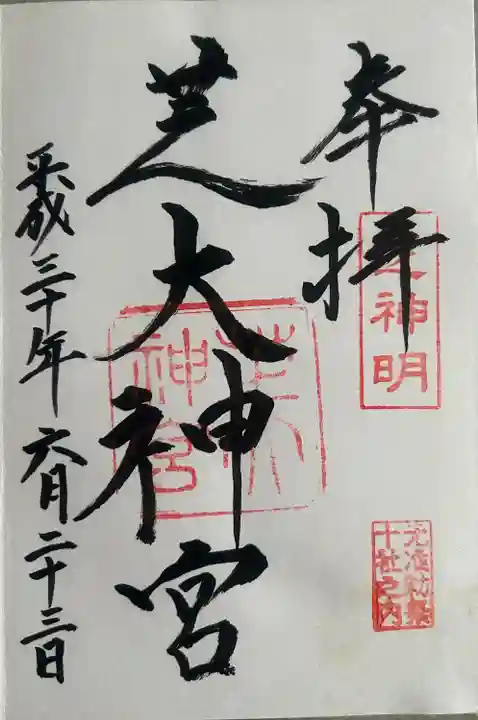 奉拝
神明
元准勅祭
十社之内
芝大神宮
芝大
神宮
平成三十年六月二十三日